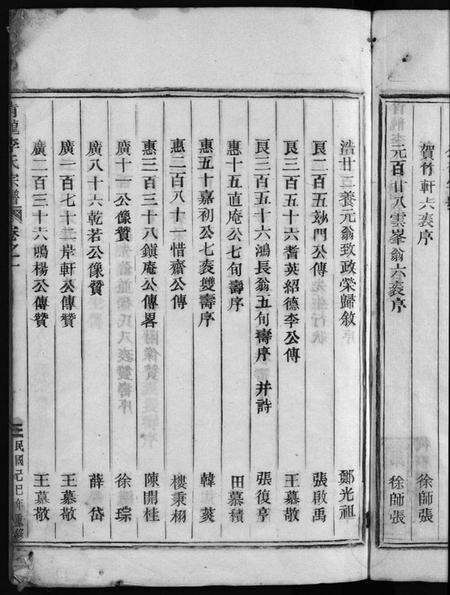 賀竹軒六袠序 徐師張
元百廿八雲峯翁六袠序 徐師張
浩廿二養元翁致政榮歸敘 鄭光祖
艮二百五妙門公傳 張啟禹
艮二百五十六耆英紹德李公傳 王慕敬
惠三百五十六鴻長翁五旬壽序 并詩 張復亨
惠十五直庵公七旬壽序 田慕積
惠五十嘉初公七袠雙壽序 韓葵
惠二百八十一惜齋公傳 樓秉栩
惠三百三十八鎮庵公傳畧 陳開桂
廣十一公像贊 徐琮
廣八十六乾若公像贊 薛岱
廣一百七十三岸軒公傳贊 王慕敬
廣二百三十六鳴楊公傳贊 王慕敬
李氏宗譜 卷之一
民國己巳年重修